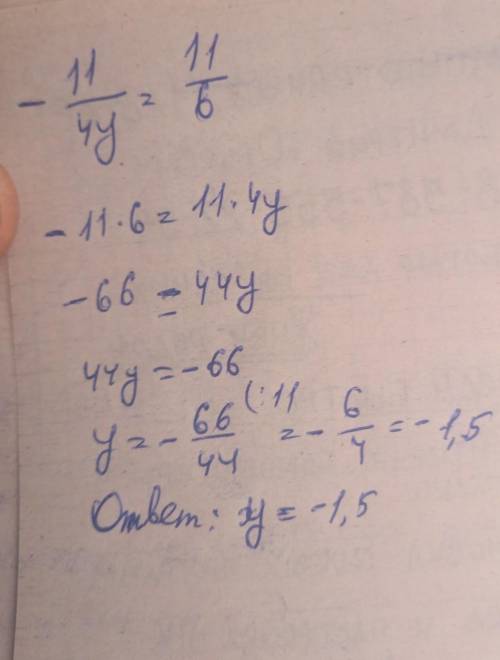 - 11/4y = 11/6
-11·6 = 11·4y
-66 = 44y
44y = -66
y = - 66/44 (:11 = - 6/4 = -1,5
Ответ: y = -1,5